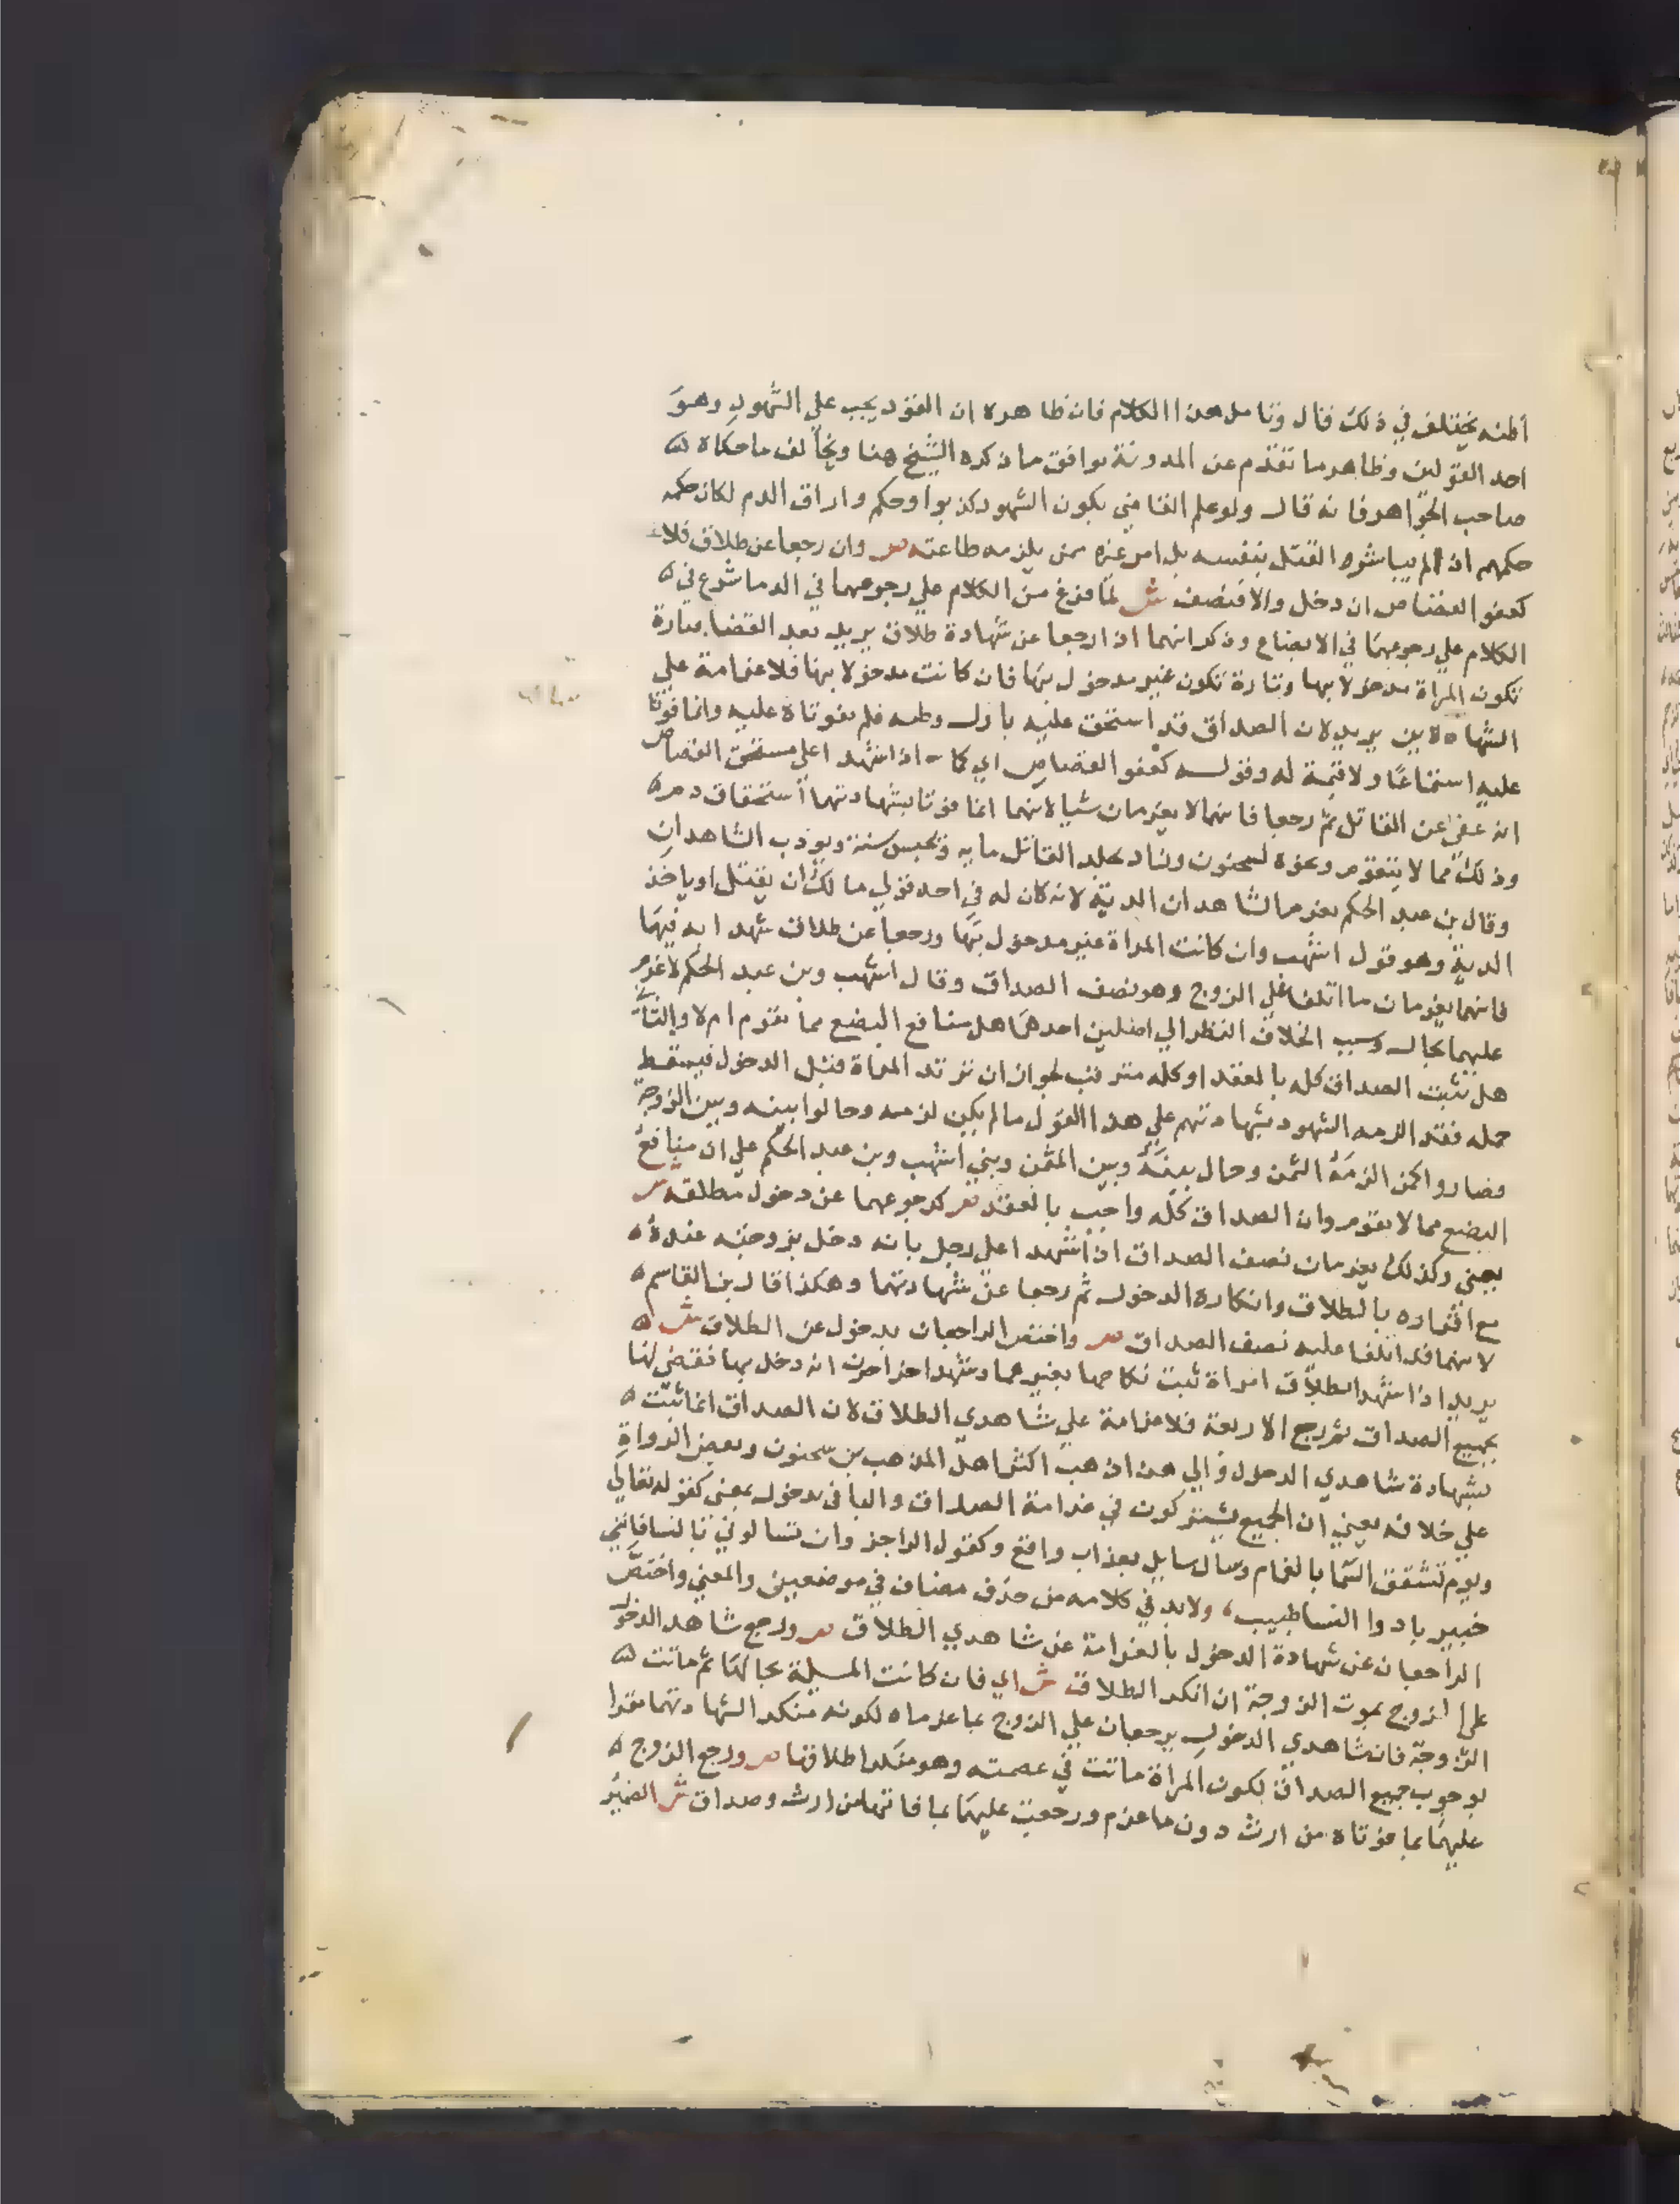 اظنه يختلف في ذلك قال وتامل هذا الكلام فان ظاهره ان القود يجب علي الشهود وهو
احد القولين وظاهر ما تقدم عن المدونة يوافق ما ذكره الشيخ هنا ويخالف ما حكاه
صاحب الجواهر فانه قال ولو علم القاضي بكون الشهود كذبوا وحكم واراق الدم لكان حكمه
حكمهم اذا لم يباشر القتل بنفسه بل امر غيره ممن يلزمه طاعته ص وان رجعا عن طلاق فلا غ
كعفو القصاص ان دخل والا فنصف ش لما فرغ من الكلام علي رجوعهما في الدما شرع في
الكلام علي رجوعهما في الابضاع وذكر انهما اذا رجعا عن شهادة طلاق يريد بعد القضا فتارة
تكون المراة مدخولا بها وتارة تكون غير مدخول بها فان كانت مدخولا بها فلا غرامة علي
الشاهدين يريد لان الصداق قد استحق عليه باول وطيه فلم يفوتاه عليه وانما فوتا
عليه استمتاعا ولا قيمة له وقوله كعفو القصاص اي كما اذا شهدا علي مستحق القصاص
انه عفي عن القاتل ثم رجعا فانهما لا يغرمان شيا لانهما انما فوتا بشهادتهما استحقاق دم
وذلك مما لا يتقوم ونحوه لسحنون وزاد يجلد القاتل مايه ويحبس سنة ويودب الشاهدان
وقال بن عبد الحكم يغرم الشاهدان الدية لانه كان له في احد قولي مالك ان يقتل او ياخذ
الدية وهو قول اشهب وان كانت المراة غير مدخول بها ورجعا عن طلاق شهدا به فيها
فانهما يغرمان ما اتلفا علي الزوج وهو نصف الصداق وقال اشهب وبن عبد الحكم لا غرم
عليهما بحال وسبب الخلاف النظر الي اصلين احدهما هل منافع البضع مما يتقوم ام لا والثاني
هل يثبت الصداق كله بالعقد او كله مترقب لجواز ان ترتد المراة قبل الدخول فيسقط
جمله فقد الزمه الشهود بشهادتهم علي هذا القول ما لم يكن لزمه وحالوا بينه وبين الزوجة
فصاروا كمن الزمه الثمن وحال بينه وبين المثمن وبني اشهب وبن عبد الحكم علي ان منافع
البضع مما لا يتقوم وان الصداق كله واجب بالعقد ص كرجوعهما عن دخول مطلقه ش
يعني وكذلك يغرمان نصف الصداق اذا شهدا علي رجل بانه دخل بزوجته عنده
مع اقراره بالطلاق وانكاره الدخول ثم رجعا عن شهادتهما وهكذا قال بن القاسم
لانهما قد اتلفا عليه نصف الصداق ص واختص الراجعان بدخول عن الطلاق ش
يريد اذا شهدا بطلاق امراة ثبت نكاحها بغيرهما وشهد اخران انه دخل بها فقضي لها
بجميع الصداق ثم رجع الاربعة فلا غرامة علي شاهدي الطلاق لان الصداق انما ثبت
بشهادة شاهدي الدخول والي هذا ذهب اكثر اهل المذهب بن سحنون وبعض الرواة
علي خلافه يعني ان الجميع يشتركون في غرامة الصداق والبا في بدخول بمعني كقوله تعالي
ويوم تشقق السما بالغمام وسال سايل بعذاب واقع وكقول الراجز وان تسالوني بالنسا فانني
خبير بادوا النسا طبيب، ولابد في كلامه من حذف مضاف في موضعين والمعني واختص
الراجعان عن شهادة الدخول بالغرامة عن شاهدي الطلاق ص ورجع شاهد الدخول
علي الزوج بموت الزوجة ان انكر الطلاق ش اي فان كانت المسيلة بحالها ثم ماتت
الزوجة فان شاهدي الدخول يرجعان علي الزوج بما غرماه لكونه منكر الشهادتهما مقرا
لوجوب جميع الصداق لكون المراة ماتت في عصمته وهو منكر اطلاقها ص ورجع الزوج
عليهما بما فوتاه من ارث دون ما غرم ورجعت عليهما بما فاتها من ارث وصداق ش الضمير